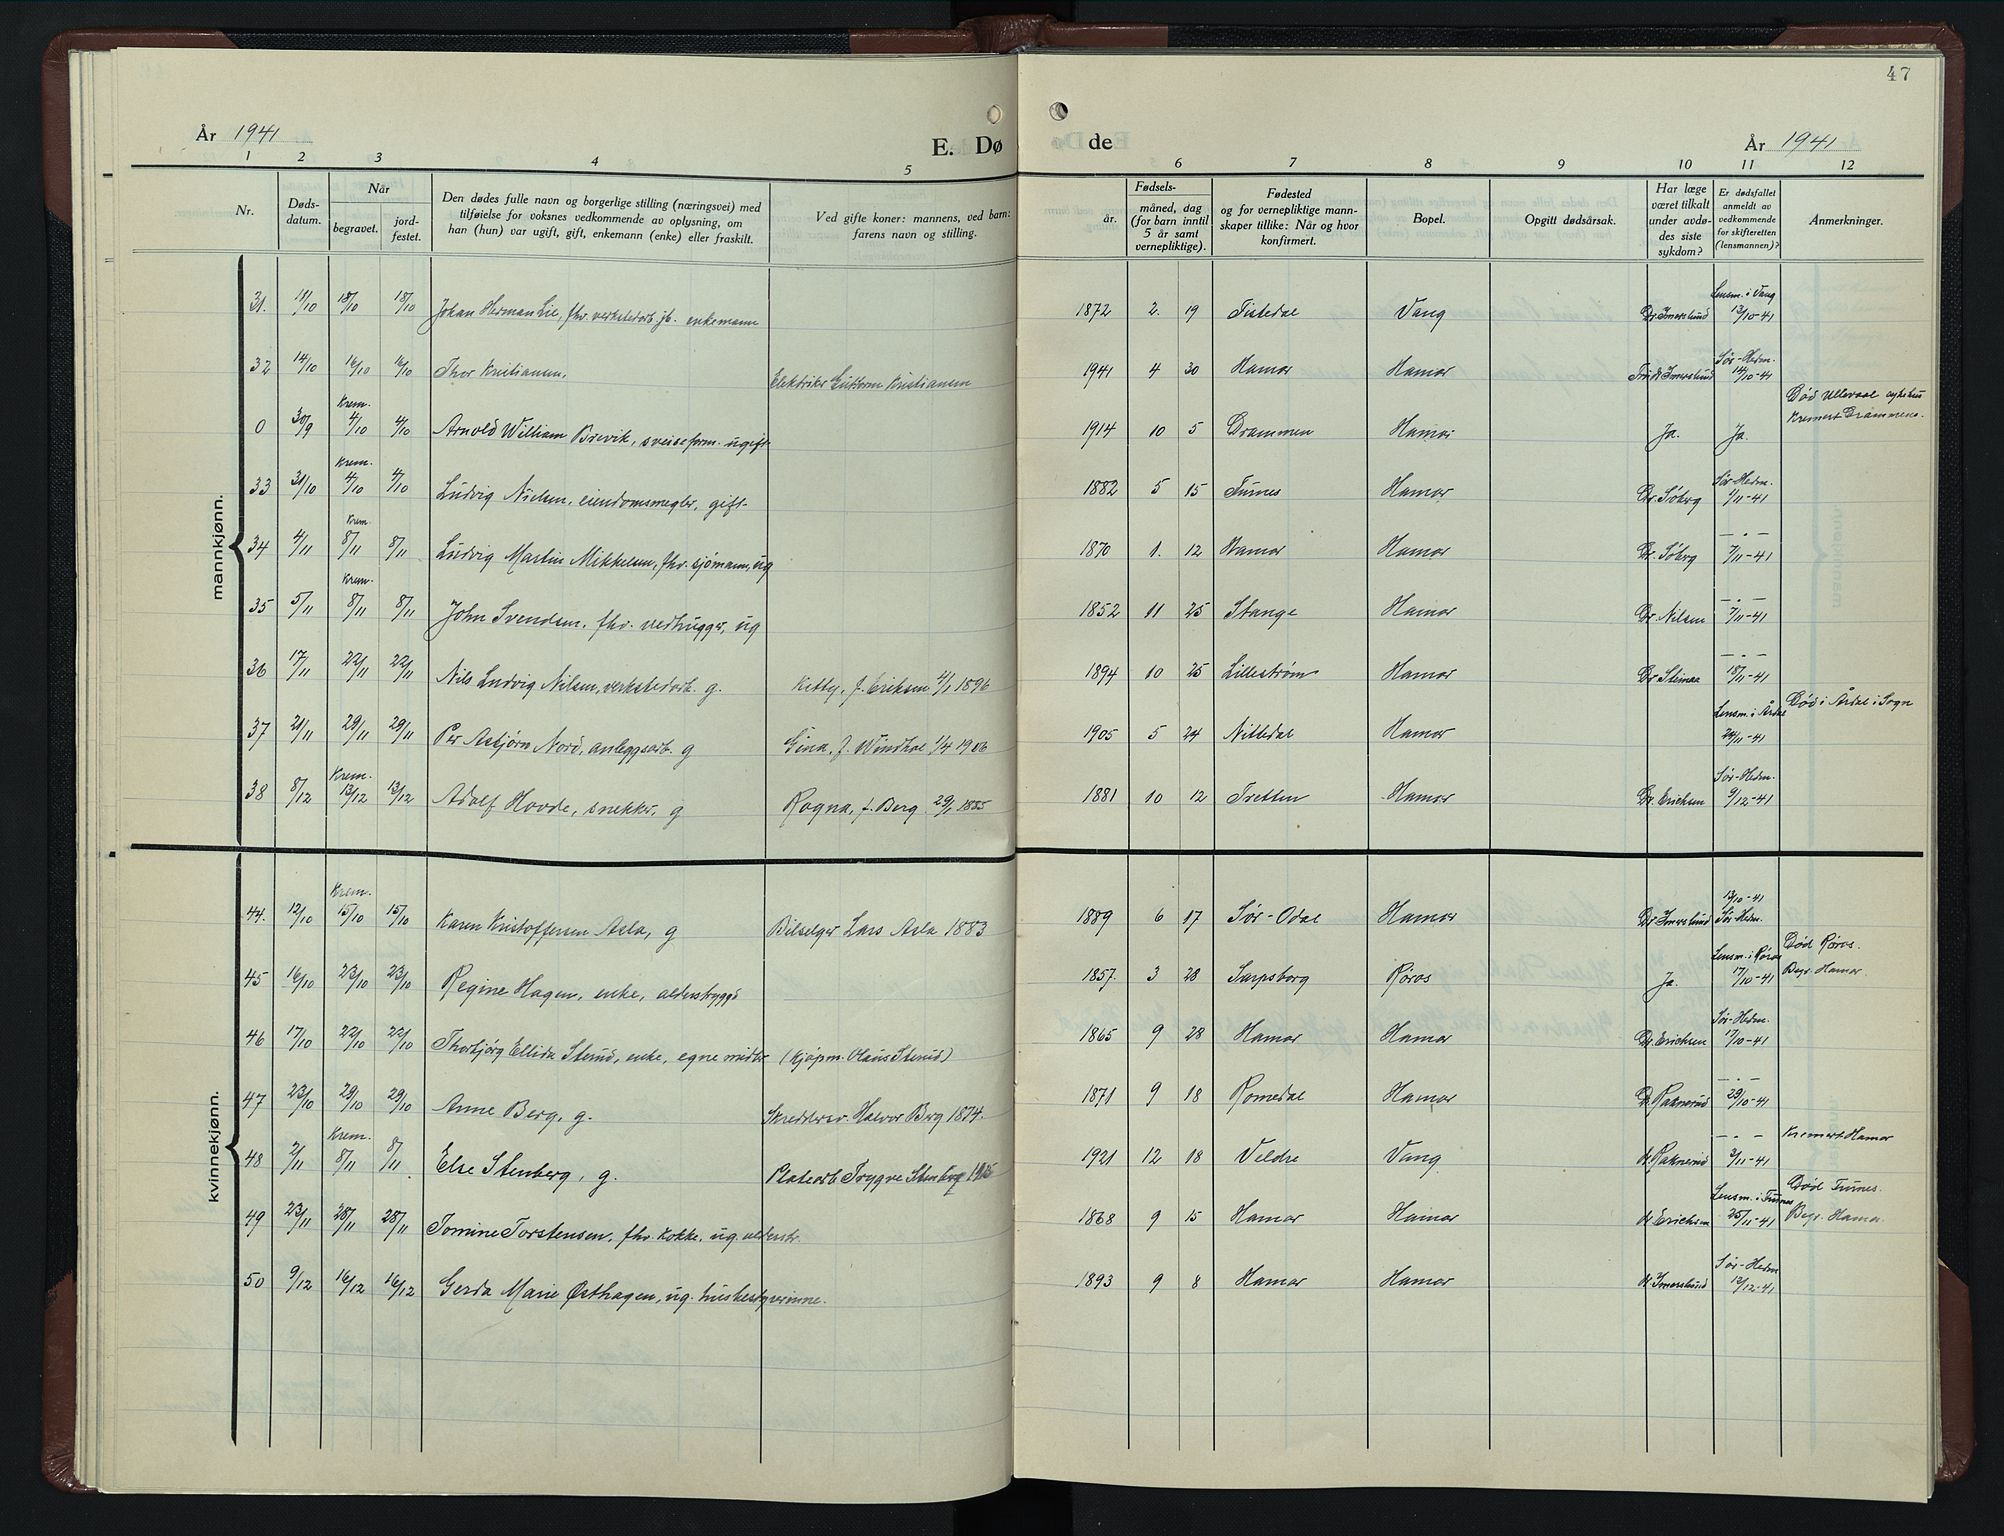 47
År 1941
E. Dø
de
År 1941
1 2 3 4 5 6 7 8 9 10 11 12
Nr.
Døds-
datum.
Når
begravet.
jord-
festet.
Den dødes fulle navn og borgerlige stilling (næringsvei) med
tilføielse for voksnes vedkommende av oplysning, om
han (hun) var ugift, gift, enkemann (enke) eller fraskilt.
Ved gifte koner: mannens, ved barn:
farens navn og stilling.
år.
Fødsels-
måned, dag
(for barn inntil
5 år samt
vernepliktige).
Fødested
og for vernepliktige mann-
skaper tillike: Når og hvor
konfirmert.
Bopel.
Opgitt dødsårsak.
Har læge
været tilkalt
under avdø-
des siste
sykdom?
Er dødsfallet
anmeldt av
vedkommende
for skifteretten
(lensmannen)?
Anmerkninger.
mannkjønn.
Lensm. i Vang
31. 11/10 18/10 18/10 Johan Herman Lie, fhv. verkstedarb. jb. enkemann 1872 2. 19 Tistedal Vang Dr. Imerslund 13/10-41
Sør-Hedm.
32 14/10 16/10 16/10 Thor Kristiansen, Elektriker Guttorm Kristiansen 1941 4 30 Hamar Hamar Imerslund 14/10-41
Krem. Død Ullevaal sykehus
0 30/9 4/10 4/10 Arnold William Brevik, sveiseform. ugift 1914 10 5 Drammen Hamar Ja. Ja. Kremert Drammen.
Krem. Sør-Hedm.
33 31/10 4/10 4/10 Ludvig Nielsen, eiendomsmegler, gift- 1882 5 15 Furnes Hamar Dr. Søberg 1/11-41
Krem. — . —
34 4/11 8/11 8/11 Ludvig Martin Mikkelsen, fhv. sjømann, ug 1870 1. 12 Hamar Hamar Dr. Søberg 7/11-41
Krem. — . —
35 5/11 8/11 8/11 John Svendsen, fhv. vedhugger, ug 1852 11 25 Stange Hamar Dr. Nilsen 7/11-41
— . —
36 17/11 22/11 22/11 Nils Ludvig Nilsen, verkstedarb. g. Kitty, f. Eriksen 4/1 1896 1894 10 25 Lillestrøm Hamar Dr Steinaa 18/11-41
Lensm. i Årdal Død i Årdal i Sogn
37 21/11 29/11 29/11 Per Asbjørn Nord, anleggsarb. g Gina, f. Windhol 1/4 1906 1905 5 24 Nittedal Hamar 24/11-41
Krem. Sør-Hedm.
38 8/12 13/12 13/12 Adolf Hovde, snekker, g Ragna, f. Berg 29/1 1885 1881 10 12 Tretten Hamar Dr. Erichsen 9/12-41
kvinnekjønn.
Krem. 13/10-41
44. 12/10 15/10 15/10 Karen Kristoffersen Asla, g Bilselger Lars Asla 1883 1889 6 17 Sør-Odal Hamar Dr Imerslund Sør-Hedm.
Lensm. i Røros Død Røros.
45 16/10 23/10 23/10 Regine Hagen, enke, alderstrygd 1857. 3 28 Sarpsborg Røros Ja. 17/10-41 Begr. Hamar.
Sør-Hedm.
46 17/10 22/10 22/10 Thorbjørg Ellida Sterud, enke, egne midler (Kjøpm. Olaus Sterud) 1865 9 28 Hamar Hamar Dr. Erichsen 17/10-41
— . —
47 23/10 29/10 29/10 Anne Berg, g. Skreddersv. Halvor Berg 1874. 1871 9 18 Romedal Hamar Dr. Raknerud 23/10-41
Krem. — . — Kremert Hamar
48 2/11 8/11 8/11 Else Stenberg, g. Platearb Trygve Stenberg 1915 1921 12 18 Veldre Vang dr. Raknerud 3/11-41
Lensm. i Furnes Død Furnes.
49 23/11 28/11 28/11 Tomine Torstensen, fhv. kokke, ug. alderstr. 1868 9 15 Hamar Hamar dr Erichsen 25/11-41 Begr. Hamar.
Sør-Hedm
50 9/12 16/12 16/12 Gerda Marie Østhagen, ug. husbestyrerinne. 1893 9 8 Hamar Hamar dr Imerslund 12/12-41